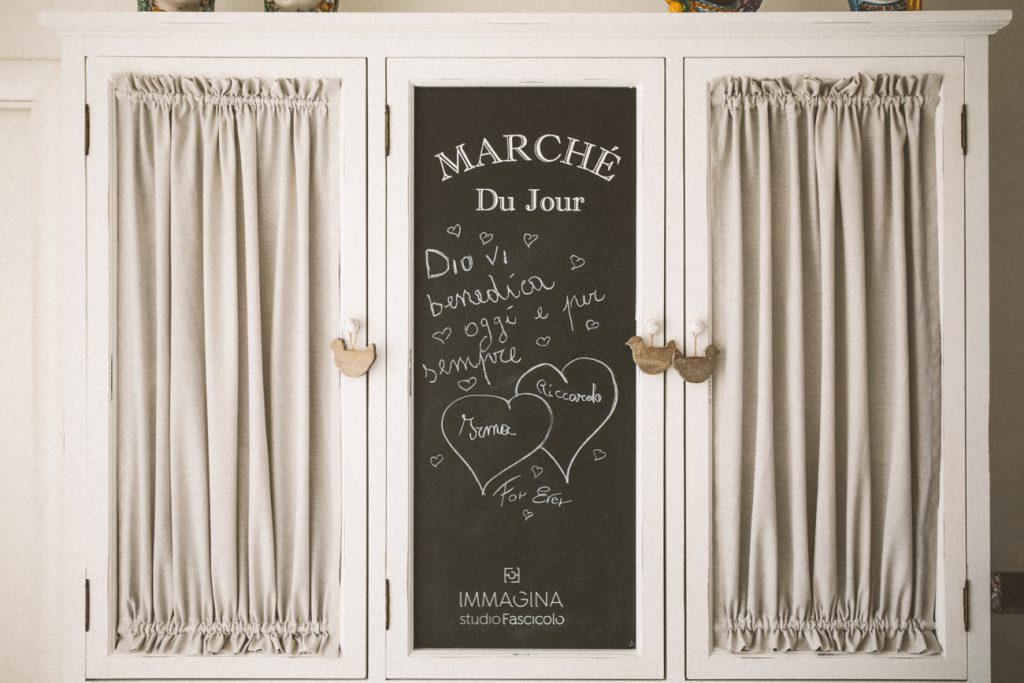 MARCHÉ
Du Jour
Dio vi
benedica
oggi e per
sempre
Riccardo
Irma
For Ever
IMMAGINA
studio Fascicolo